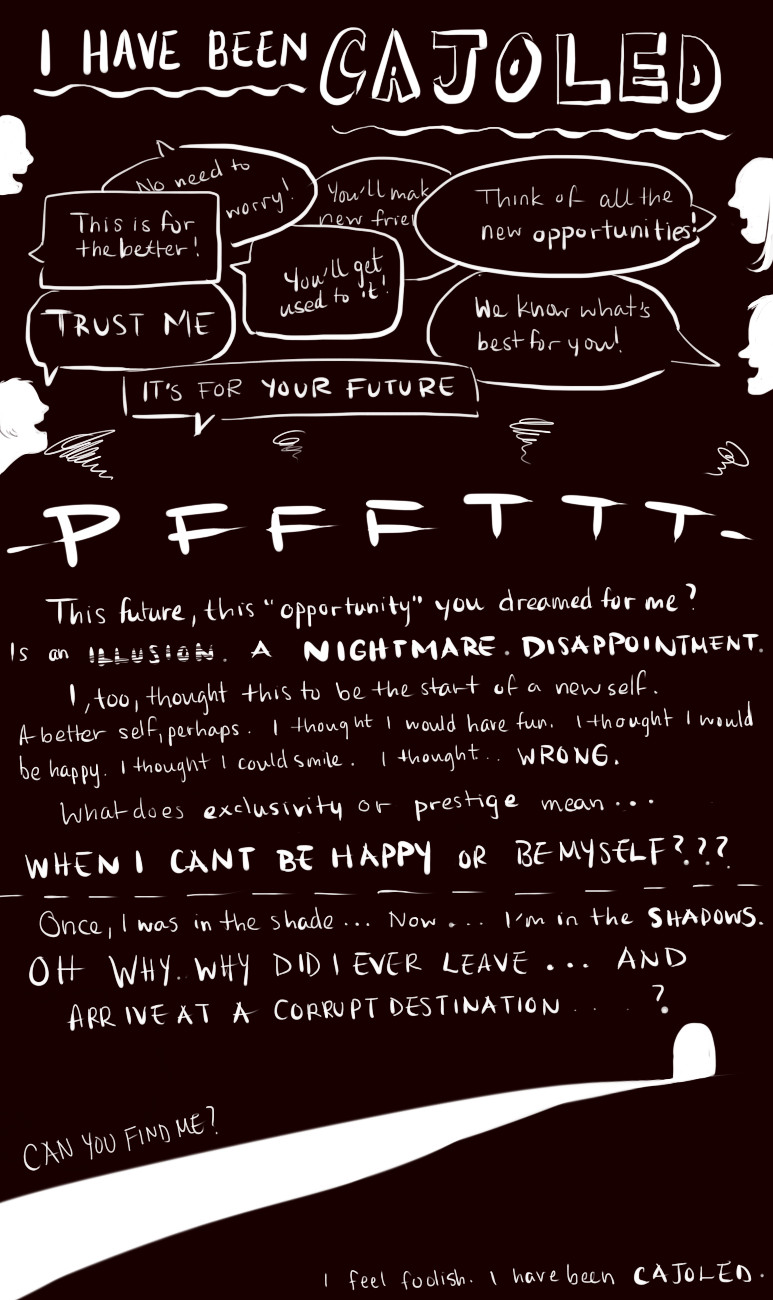 I HAVE BEEN CAJOLED
No need to
worry!
You'll mak
new frie
Think of all the
new opportunities!
This is for
the better!
You'll get
used to it!
TRUST ME
We know what's
best for you!
IT'S FOR YOUR FUTURE
PFFFTTT-
This future, this "opportunity" you dreamed for me?
Is an ILLUSION. A NIGHTMARE. DISAPPOINTMENT.
I, too, thought this to be the start of a new self.
A better self, perhaps. I thought I would have fun. I thought I would
be happy. I thought I could smile. I thought.. WRONG.
What does exclusivity or prestige mean...
WHEN I CANT BE HAPPY OR BE MYSELF???
Once, I was in the shade... Now... I'm in the SHADOWS.
OH WHY. WHY DID I EVER LEAVE... AND
ARRIVE AT A CORRUPT DESTINATION....?
CAN YOU FIND ME?
I feel foolish. I have been CAJOLED.